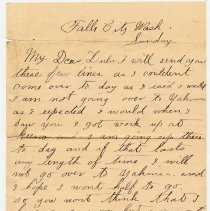 Falls City Wash.
Sunday.
My Dear I will send you
these few lines as I couldent
come over to day as I said I would
I am not going over to Yakima
as I expected I would when I
saw you I got work up at
and I am going up there
to day and if that lasts
any length of time I will
not go over to Yakima and
I hope I wont half to go
so you wont think that I